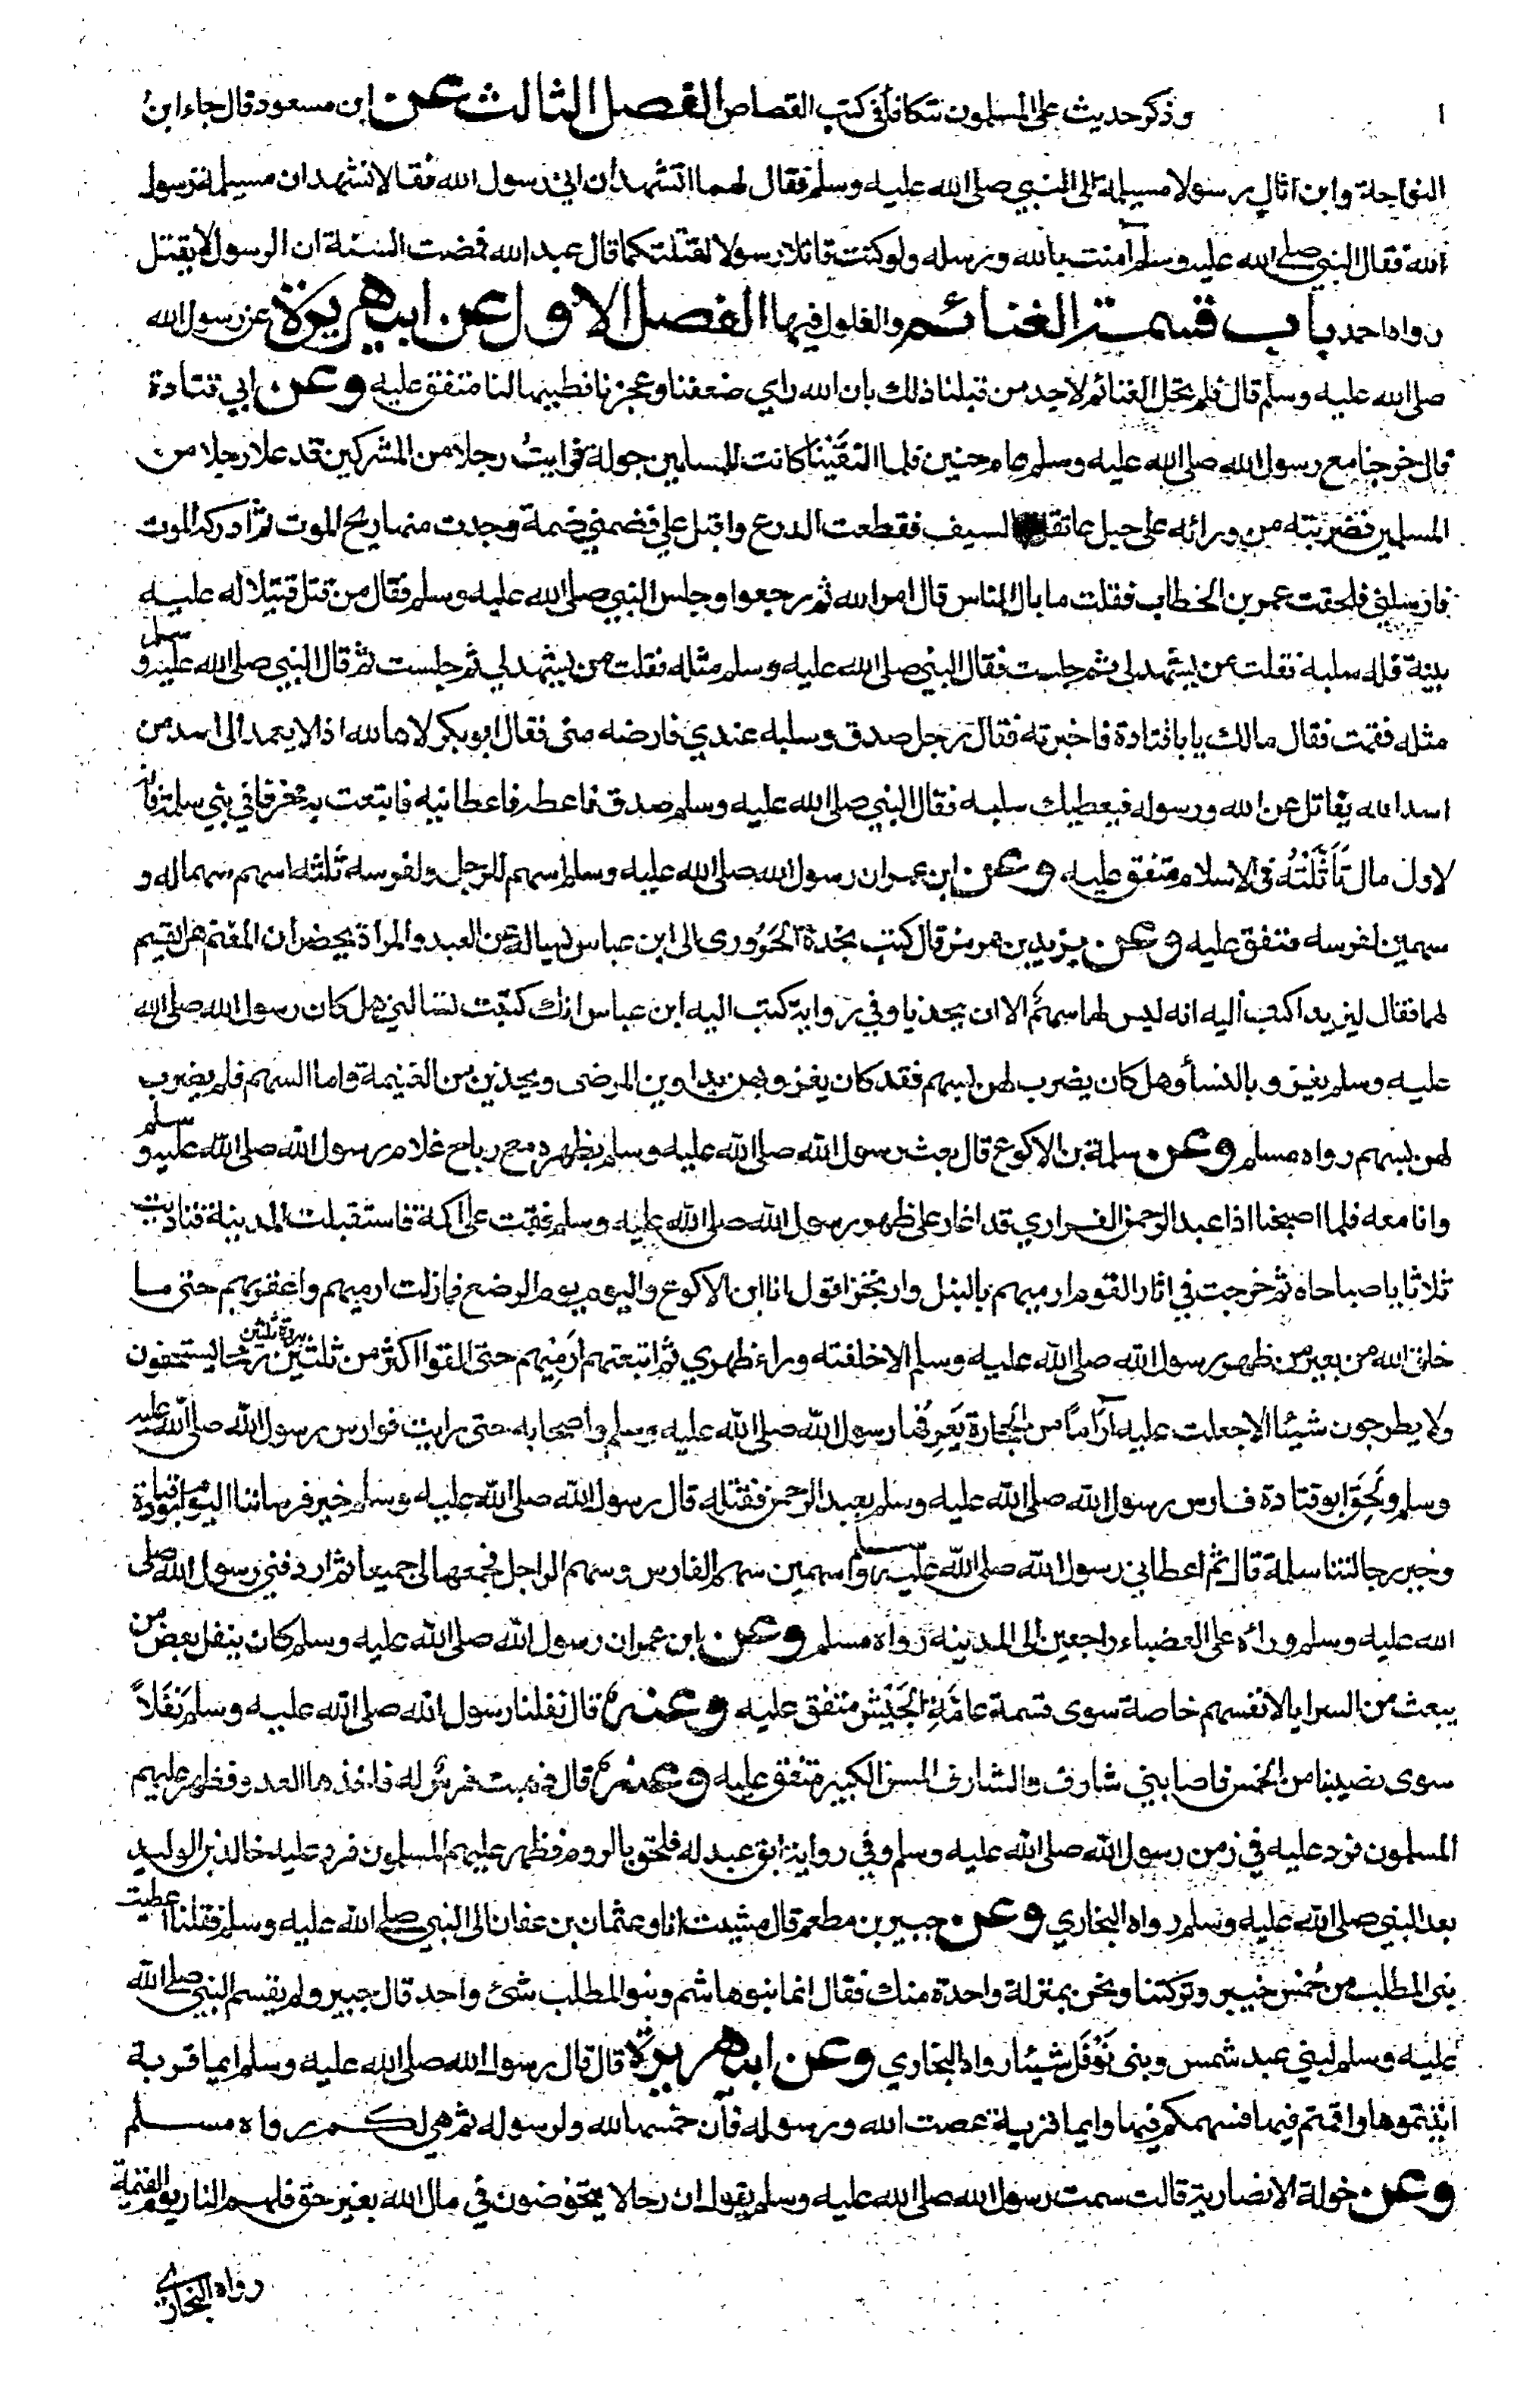 وذكر حديث علي المسلمون تتكافأ في كتب القصاص الفصل الثالث عن ابن مسعود قال جاء ابن
النواحة وابن اثال رسولا مسيلمة الى النبي صلى الله عليه وسلم فقال لهما اتشهدان اني رسول الله فقالا نشهد ان مسيلمة رسول
الله فقال النبي صلى الله عليه وسلم آمنت بالله ورسله ولو كنت قاتلا رسولا لقتلتكما قال عبد الله فمضت السنة ان الرسول لا يقتل
رواه احمد باب قسمة الغنائم والغلول فيها الفصل الاول عن ابي هريرة عن رسول الله
صلى الله عليه وسلم قال فلم تحل الغنائم لاحد من قبلنا ذلك بان الله راى ضعفنا وعجزنا فطيبها لنا متفق عليه وعن ابي قتادة
قال خرجنا مع رسول الله صلى الله عليه وسلم عام حنين فلما التقينا كانت للمسلمين جولة فرايت رجلا من المشركين قد علا رجلا من
المسلمين فضربته من ورائه على حبل عاتقه السيف فقطعت الدرع واقبل علي فضمني ضمة وجدت منها ريح الموت ثم ادركه الموت
فارسلني فلحقت عمر بن الخطاب فقلت ما بال الناس قال امر الله ثم رجعوا وجلس النبي صلى الله عليه وسلم فقال من قتل قتيلا له عليه
بينة فله سلبه فقلت من يشهد لي ثم جلست فقال النبي صلى الله عليه وسلم مثله فقلت من يشهد لي ثم جلست ثم قال النبي صلى الله عليه وسلم
مثله فقمت فقال مالك يا باقتادة فاخبرته فقال رجل صدق وسلبه عندي فارضه منى فقال ابو بكر لاها لله اذا لا يعمد الى اسد من
اسد الله يقاتل عن الله ورسوله فيعطيك سلبه فقال النبي صلى الله عليه وسلم صدق فاعطه فاعطانيه فابتعت به مخرفا في بني سلمة فانه
لاول مال تَأَثَّلْتُه في الاسلام متفق عليه وعن ابن عمر ان رسول الله صلى الله عليه وسلم اسهم للرجل ولفرسه ثلثة اسهم سهما له و
سهمين لفرسه متفق عليه وعن يزيد بن هرمز قال كتب نجدة الحَرُوري الى ابن عباس يساله عن العبد والمراة يحضران المغنم هل يقسم
لهما فقال ليزيد اكتب اليه انه ليس لهما سهمٌ الا ان يحذيا وفي رواية كتب اليه ابن عباس انك كتبت تسالني هل كان رسول الله صلى الله
عليه وسلم يغزو بالنساء وهل كان يضرب لهن بسهم فقد كان يغزو بهن يداوين المرضى ويحذين من الغنيمة واما السهم فلم يضرب
لهن بسهم رواه مسلم وعن سلمة بن الاكوع قال بعث رسول الله صلى الله عليه وسلم بظهره مع رباح غلام رسول الله صلى الله عليه وسلم
وانا معه فلما اصبحنا اذا عبد الرحمن الفزاري قد اغار على ظهر رسول الله صلى الله عليه وسلم فقمت على اكمة فاستقبلت المدينة فناديت
ثلاثا يا صباحاه ثم خرجت في اثار القوم ارميهم بالنبل وارتجز اقول انا ابن الاكوع واليوم يوم الرضع فما زلت ارميهم واعقر بهم حتى ما
خلق الله من بعير من ظهر رسول الله صلى الله عليه وسلم الا خلفته وراء ظهري ثم اتبعتهم ارميهم حتى القوا اكثر من ثلثين بردة وثلثين رمحا يستخفون
ولا يطرحون شيئا الا جعلت عليه آرَاماً من الحجارة يَعرِفُها رسول الله صلى الله عليه وسلم واصحابه حتى رايت فوارس رسول الله صلى الله عليه
وسلم ولَحِقَ ابو قتادة فارس رسول الله صلى الله عليه وسلم بعبد الرحمن فقتله قال رسول الله صلى الله عليه وسلم خير فرساننا اليوم ابو قتادة
وخير رجالتنا سلمة قال ثم اعطاني رسول الله صلى الله عليه وسلم سهمين سهم الفارس وسهم الراجل فجمعهما لي جميعا ثم اردفني رسول الله صلى
الله عليه وسلم وراءه على العضباء راجعين الى المدينة رواه مسلم وعن ابن عمر ان رسول الله صلى الله عليه وسلم كان ينفل بعض من
يبعث من السرايا لانفسهم خاصة سوى قسمة عامَّةِ الجَيْش متفق عليه وعنه قال نفلنا رسول الله صلى الله عليه وسلم نَفَلاً
سوى نصيبنا من الخمس فاصابني شارف والشارف المسن الكبير متفق عليه وعنه قال ذهبت فرسٌ له فاخذها العدو فظهر عليهم
المسلمون فرد عليه في زمن رسول الله صلى الله عليه وسلم وفي رواية ابق عبد له فلحق بالروم فظهر عليهم المسلمون فرد عليه خالد بن الوليد
بعد النبي صلى الله عليه وسلم رواه البخاري وعن جبير بن مطعم قال مشيت انا وعثمان بن عفان الى النبي صلى الله عليه وسلم فقلنا اعطيت
بنى المطلب من خُمس خيبر وتركتنا ونحن بمنزلة واحدة منك فقال انما بنو هاشم وبنو المطلب شئ واحد قال جبير ولم يقسم النبي صلى الله
عليه وسلم لبني عبد شمس وبنى نَوْفَل شيئا رواه البخاري وعن ابي هريرة قال قال رسول الله صلى الله عليه وسلم ايما قرية
اتيتموها واقمتم فيها فسهمكم فيها وايما قرية عصت الله ورسوله فان خمسها لله ولرسوله ثم هي لكم رواه مسلم
وعن خولة الانصارية قالت سمعت رسول الله صلى الله عليه وسلم يقول ان رجالا يتخوضون في مال الله بغير حق فلهم النار يوم القيمة
رواه البخاري